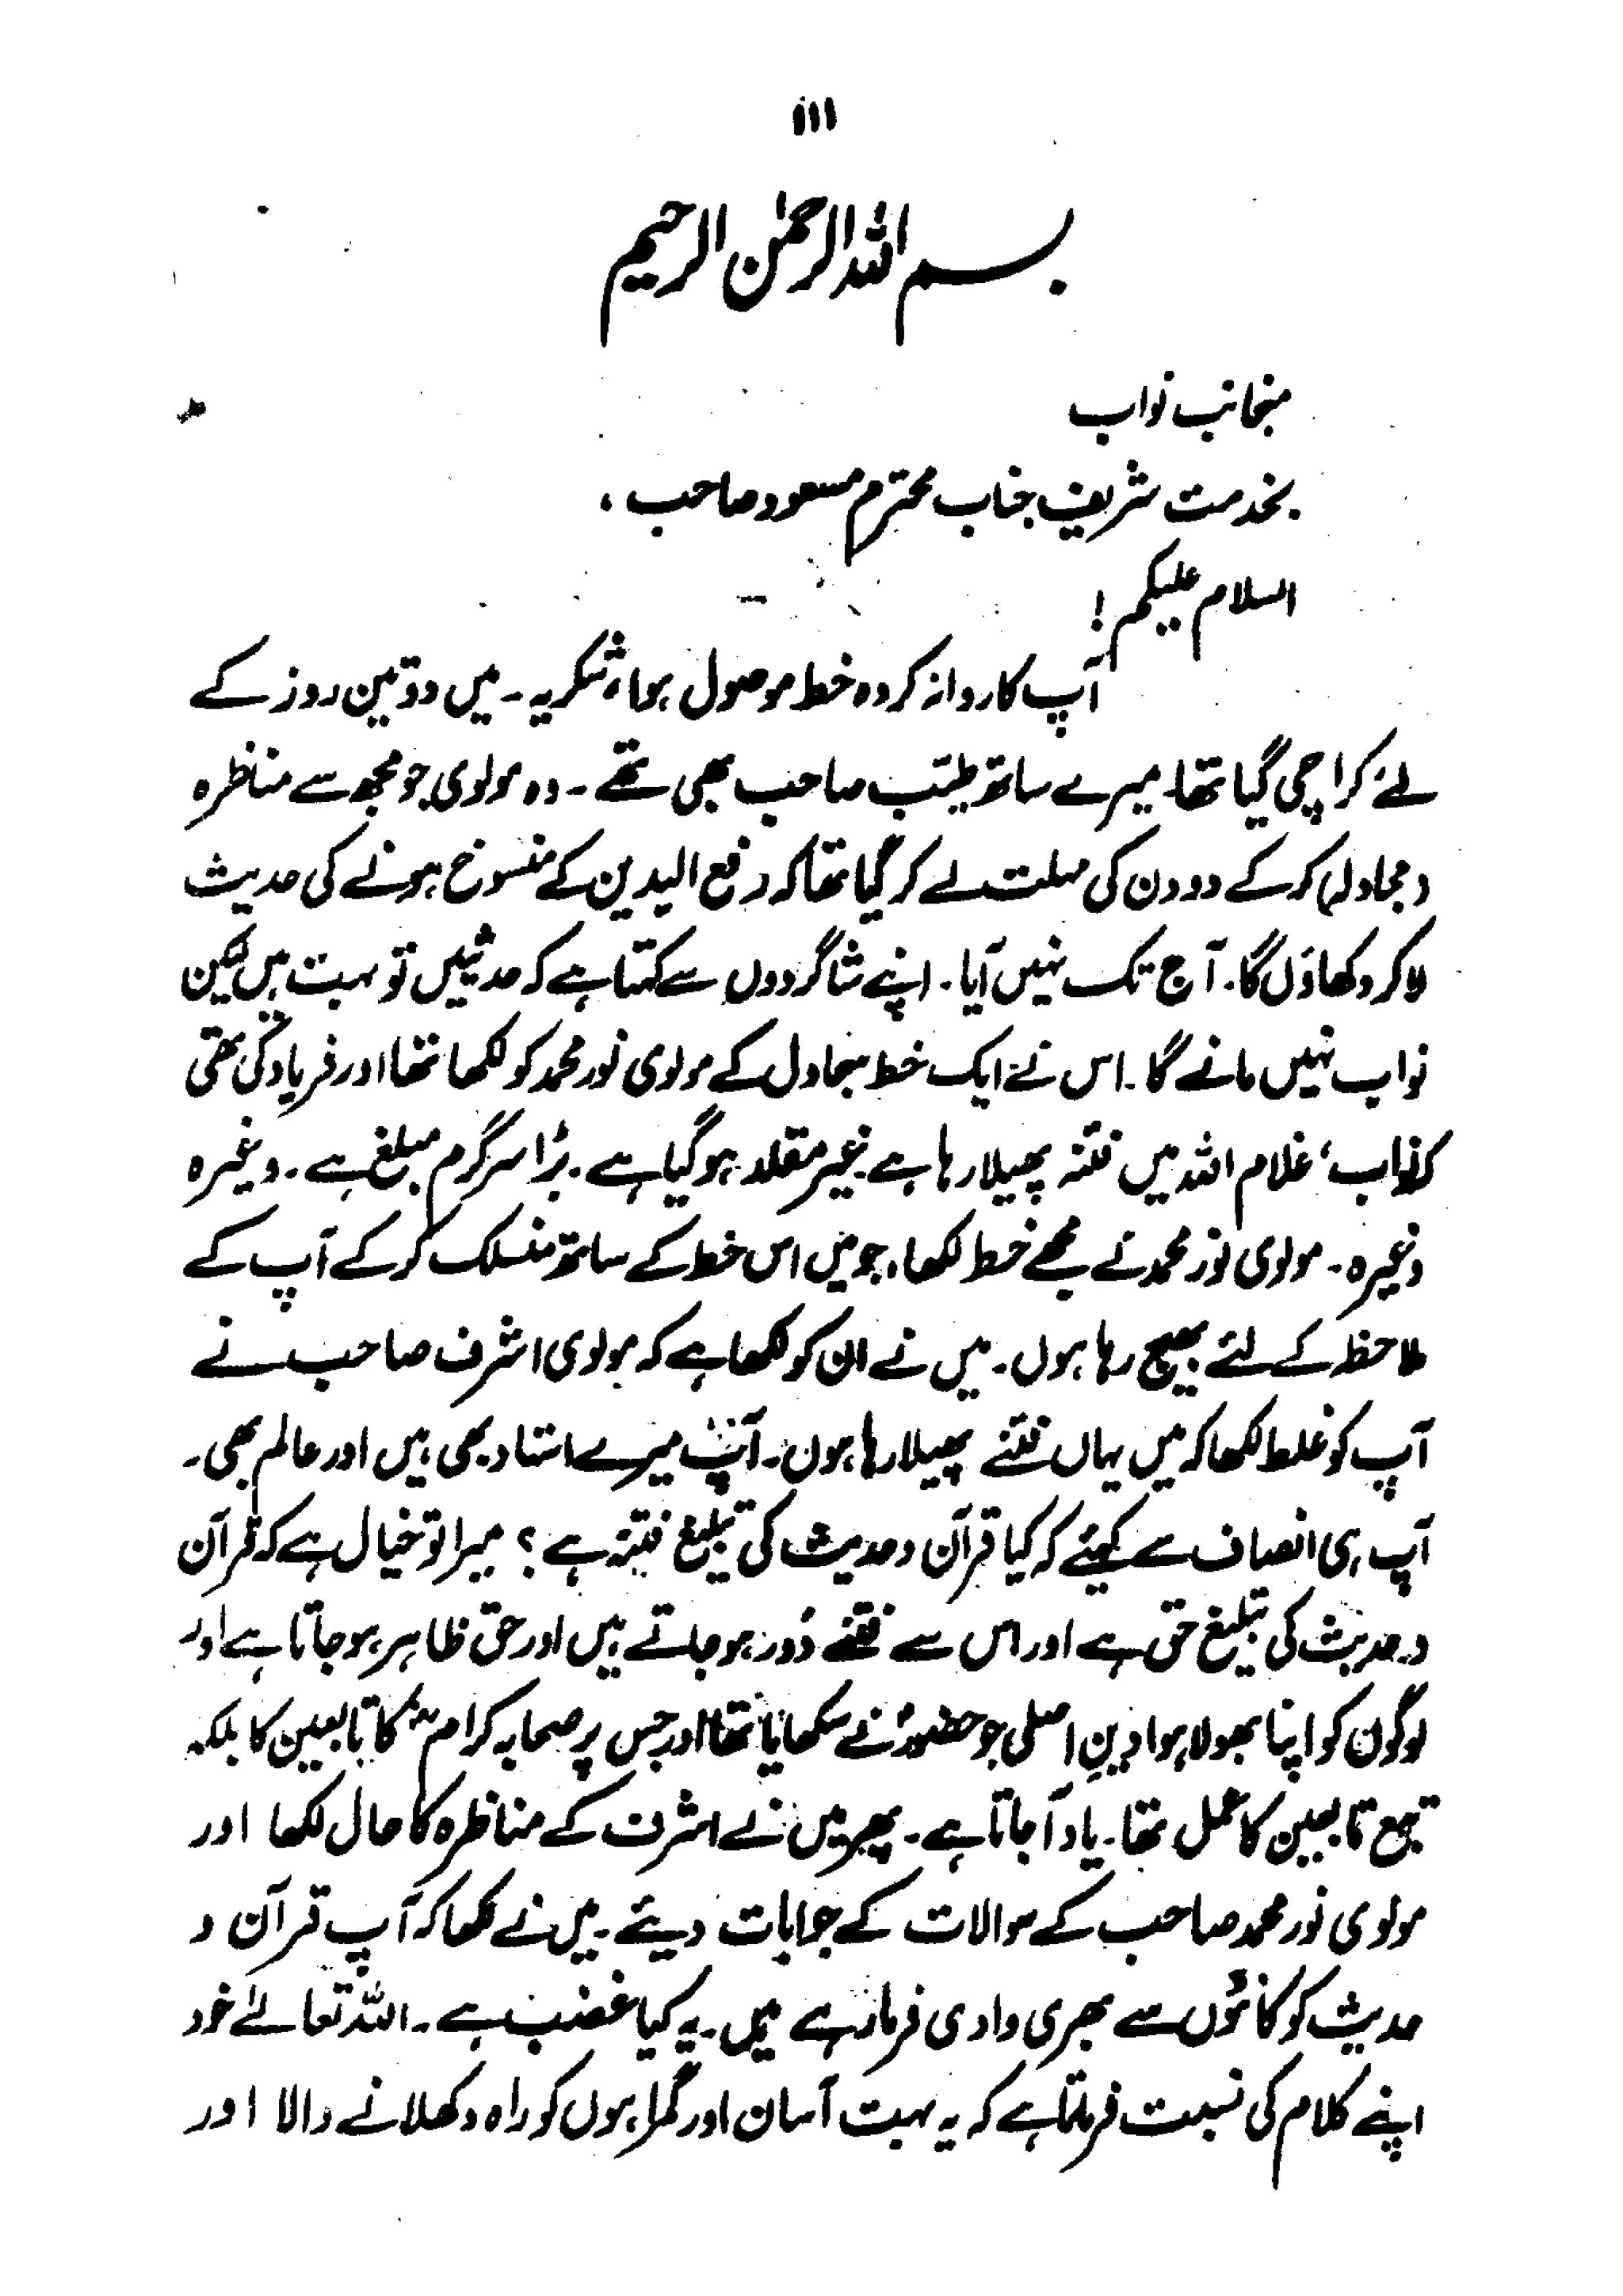 ۱۱۱
بسم اللہ الرحمٰن الرحیم
منجانب نواب
بخدمت شریف جناب محترم مسعود صاحب ،
السلام علیکم !
آپ کا روانہ کردہ خط موصول ہوا، شکریہ ۔ میں دو تین روز کے
لئے کراچی گیا تھا۔ میرے ساتھ طیّب صاحب بھی تھے ۔ وہ مولوی جو مجھ سے مناظرہ
و مجادلہ کر کے دو دن کی مہلت لے کر گیا تھا کہ رفع الیدین کے منسوخ ہونے کی حدیث
لا کر دکھاؤں گا۔ آج تک نہیں آیا ۔ اپنے شاگردوں سے کہتا ہے کہ حدیثیں تو بہت ہیں لیکن
نواب نہیں مانے گا ۔ اس نے ایک خط سجاول کے مولوی نور محمد کو لکھا تھا اور فریاد کی تھی
کہ نواب، غلام اللہ میں فتنہ پھیلا رہا ہے غیر مقلد ہو گیا ہے ۔ بڑا سرگرم مبلغ ہے ۔ وغیرہ
وغیرہ ۔ مولوی نور محمد نے مجھے خط لکھا، جو میں اس خط کے ساتھ منسلک کر کے آپ کے
ملاحظہ کے لئے بھیج رہا ہوں ۔ میں نے ان کو لکھا ہے کہ مولوی اشرف صاحب نے
آپ کو غلط لکھا کہ میں یہاں فتنے پھیلا رہا ہوں ۔ آپ میرے استاد بھی ہیں اور عالم بھی ۔
آپ ہی انصاف سے کہیئے کہ کیا قرآن و حدیث کی تبلیغ فتنہ ہے ؟ میرا تو خیال ہے کہ قرآن
و حدیث کی تبلیغ حق ہے اور اس سے فتنے دُور ہو جاتے ہیں اور حق ظاہر ہو جاتا ہے اور
لوگوں کو اپنا بھولا ہوا دینِ اصلی جو حضورؐ نے سکھایا تھا اور جس پر صحابہ کرامؓ کا تابعین کا بلکہ
تبع تابعین کا عمل تھا ۔ یاد آ جاتا ہے ۔ پھر میں نے اشرف کے مناظرہ کا حال لکھا اور
مولوی نور محمد صاحب کے سوالات کے جوابات دیئے ۔ میں نے لکھا کہ آپ قرآن و
حدیث کو کانٹوں سے بھری وادی فرما رہے ہیں ۔ یہ کیا غضب ہے ۔ اللہ تعالےٰ خود
اپنے کلام کی نسبت فرماتا ہے کہ یہ بہت آسان اور گمراہوں کو راہ دکھلانے والا اور